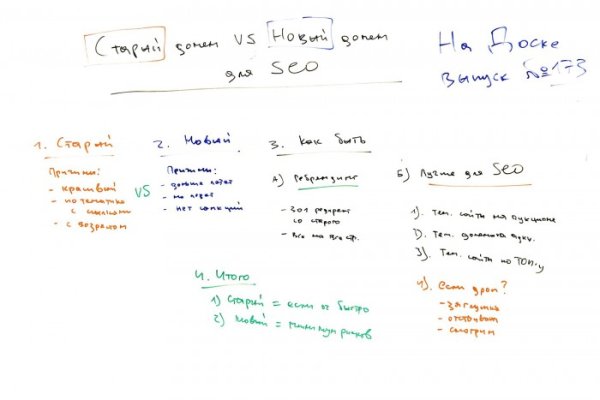 Старый домен VS Новый домен
для SEO
На Доске
выпуск №173
1. Старый
Причины:
- красивый
- по тематике
с ссылками
- с возрастом
VS
2. Новый
Причины:
- дольше
- не
- нет санкций
3. Как быть
А) Ребрендинг
- 301 редирект
со старого
- Все на все стр.
Б) Лучше для SEO
1). Тем. сайты на аукционе
2). Тем. домена аукц.
3). Тем. сайты по ТОП-у
4). если дроп?
- заглушка
- отстаиваем
- смотрим
4. Итого
1) Старый = если ог быстро
2) Новый = минимум рисков